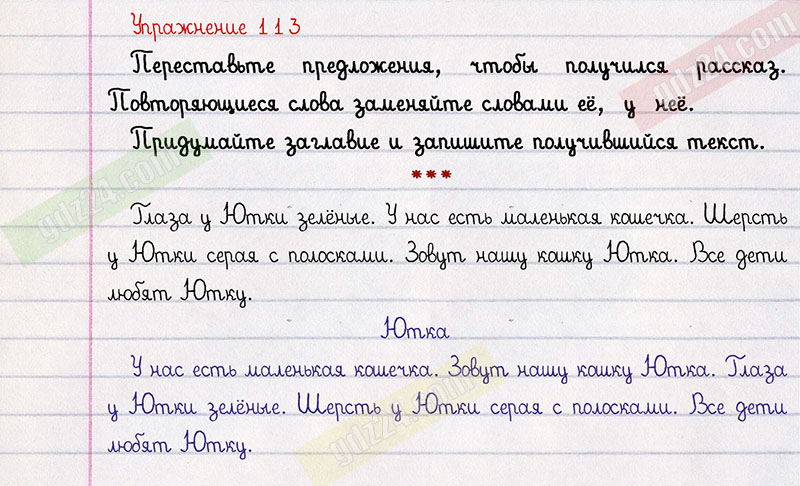 Упражнение 113
Переставьте предложения, чтобы получился рассказ.
Повторяющиеся слова заменяйте словами её, у неё.
Придумайте заглавие и запишите получившийся текст.
***
Глаза у Ютки зелёные. У нас есть маленькая кошечка. Шерсть
у Ютки серая с полосками. Зовут нашу кошку Ютка. Все дети
любят Ютку.
Ютка
У нас есть маленькая кошечка. Зовут нашу кошку Ютка. Глаза
у Ютки зелёные. Шерсть у Ютки серая с полосками. Все дети
любят Ютку.
gdz24.com
gdz24.com
gdz24.com